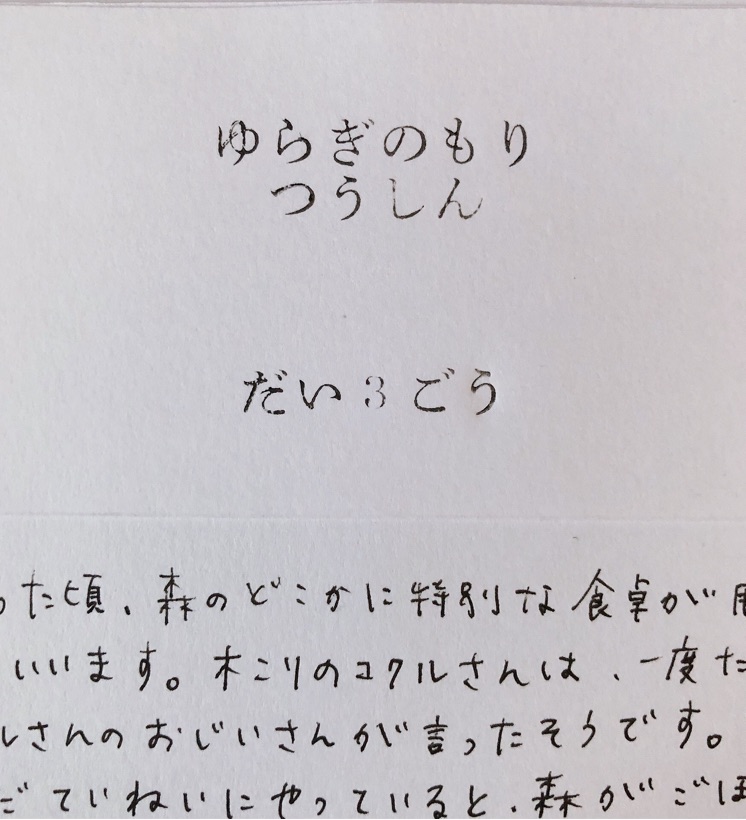 ゆらぎのもり
つうしん
だい3ごう
った頃、森のどこかに特別な食卓が用
いいます。木こりのコクルさんは、一度た
ルさんのおじいさんが言ったそうです。
ごていねいにやっていると、森がごほ